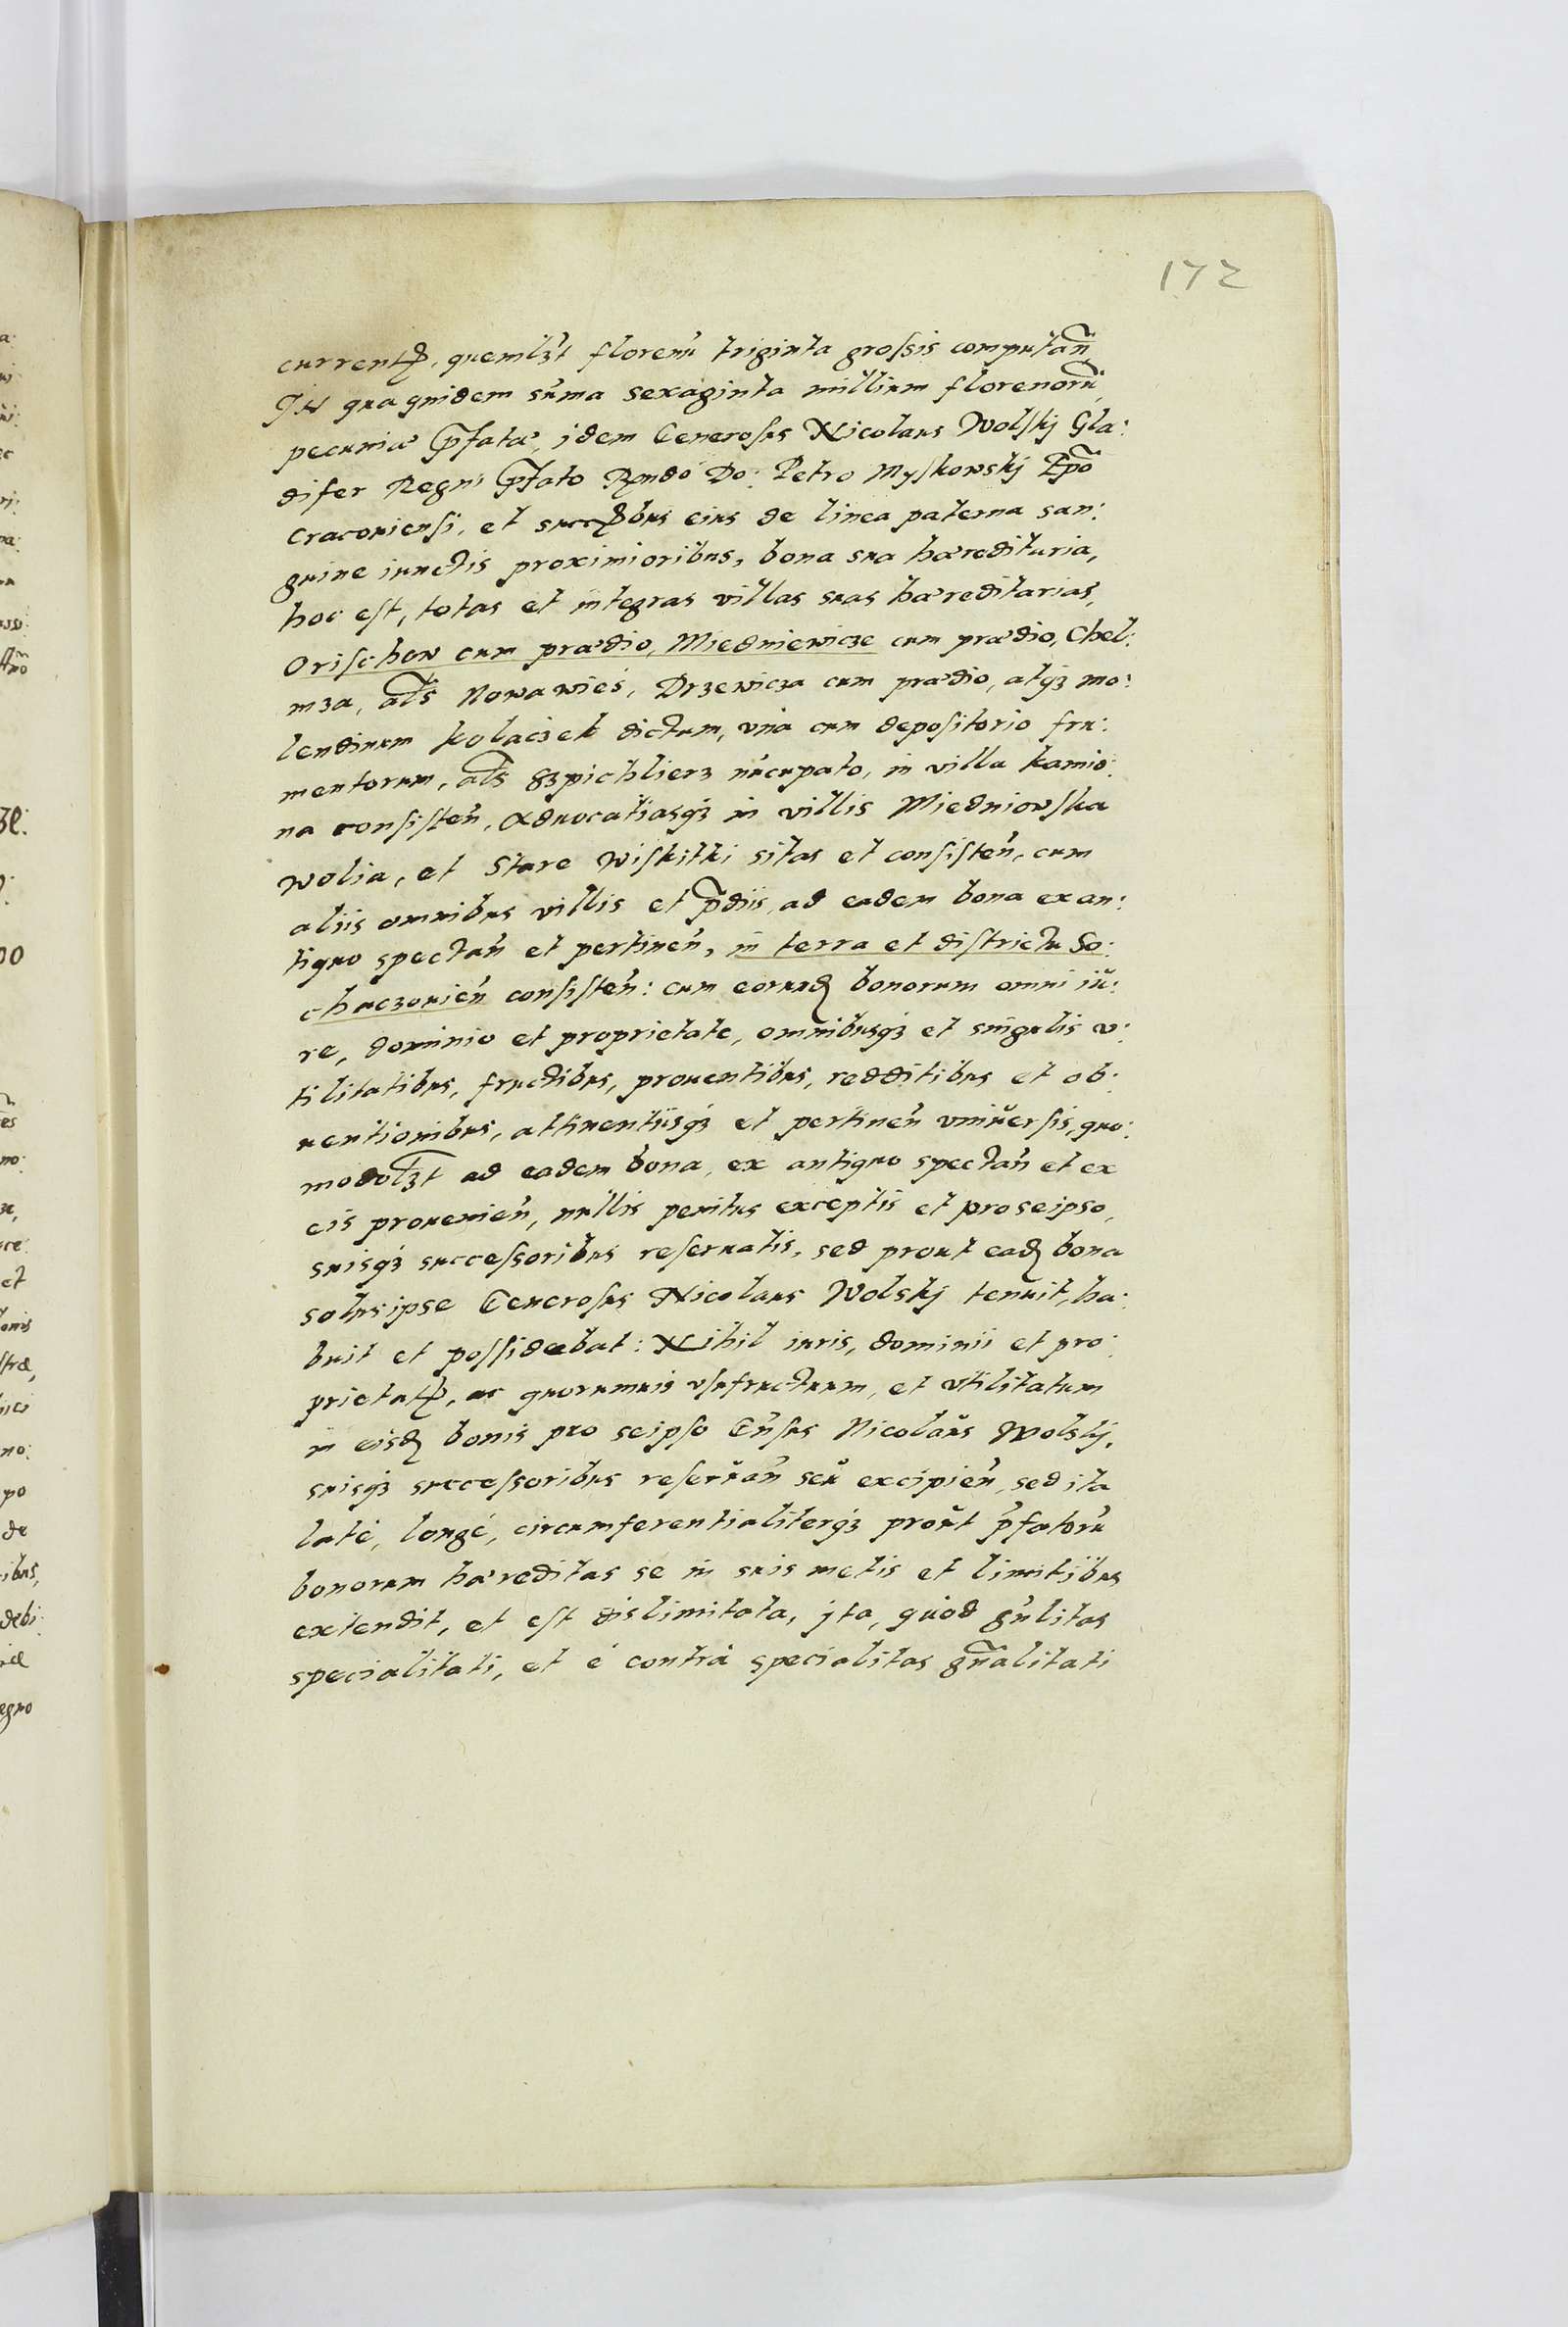 172
currentꝭ, quemlꝫt florenũ triginta grossis computañ
In qua quidem sũma sexaginta millium florenorũ,
pecuniæ p̃fatæ, idem Generosus Nicolaus Wolskj Gla:
difer Regni p̃fato Rṇdo Do: Petro Myskowskj Ep̃o
Cracouiensi, et succꝭbus eius de linea paterna san:
guine iunctis proximioribus, bona sua hæredituria,
hoc est, totas et integras villas suas hæreditarias,
Orischow cum prædio, Miedniewicze cum prædio, Chel:
mza, als Nowawieś, Drzewicza cum prædio, atqꝫ mo:
lendinum kolaczek dictum, vnà cum depositorio fru:
mentorum, als Szpichlierz nũcupato, in villa kamio:
na consisteñ, Aduocatiasqꝫ in villis Miedniowska
wolia, et Stare wiskitki sitas et consisteñ, cum
aliis omnibus villis et p̃diis, ad eadem bona ex an:
tiquo spectañ et pertineñ, in terra et districtu So:
chaczouieñ consisteñ: cum eorundꝫ bonorum omni iu:
re, dominio et proprietate, omnibusqꝫ et singulis v:
tilitatibus, fructibus, prouentibus, redditibus et ob:
uentionibus, attinentiisqꝫ et pertineñ vniuersis, quo:
modolꝫt ad eadem bona, ex antiquo spectañ et ex
eis prouenieñ, nullis penitus exceptis et pro seipso,
suisqꝫ successoribus reseruatis, sed prout eadꝫ bona
solus ipse Generosus Nicolaus Wolskj tenuit, ha:
buit et possidebat: Nihil iuris, dominii et pro:
prietatꝭ, ac quorumuis vsufructuum, et vtilitatum
in eisdꝫ bonis pro seipso Gñsus Nicolaus Wolskj,
suisqꝫ successoribus reseruañ seu excipieñ, sed ita
latè, longè, circumferentialiterqꝫ prout p̃fatorũ
bonorum hæreditas se in suis metis et limitibus
extendit, et est dislimitata, jta, quod gñlitas
specialitati, et è contrà specialitas gñalitati